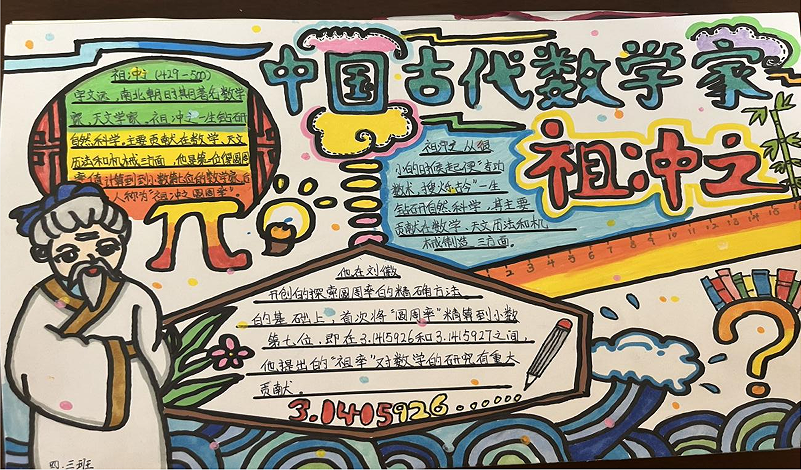 中国古代数学家
祖冲之
祖冲之(429-500)
字文远,南北朝时期著名数学
家、天文学家,祖冲之一生钻研
自然科学,主要贡献在数学、天文
历法和机械方面,他是第一位将圆周
率值计算到小数第七位的数学家,
人称为"祖冲之圆周率"。
祖冲之从很
小的时候起便"专功
数术,搜炼古今"一生
钻研自然科学,其主要
贡献在数学、天文历法和机
械制造三方面。
π
2 3 4 5 6 7 8 9 10 11 12 13 14 15
他在刘徽
开创的探索圆周率的精确方法
的基础上,首次将"圆周率"精算到小数
第七位,即在3.1415926和3.1415927之间,
他提出的"祖率"对数学的研究有重大
贡献。
3.1415926......
?
四.三班